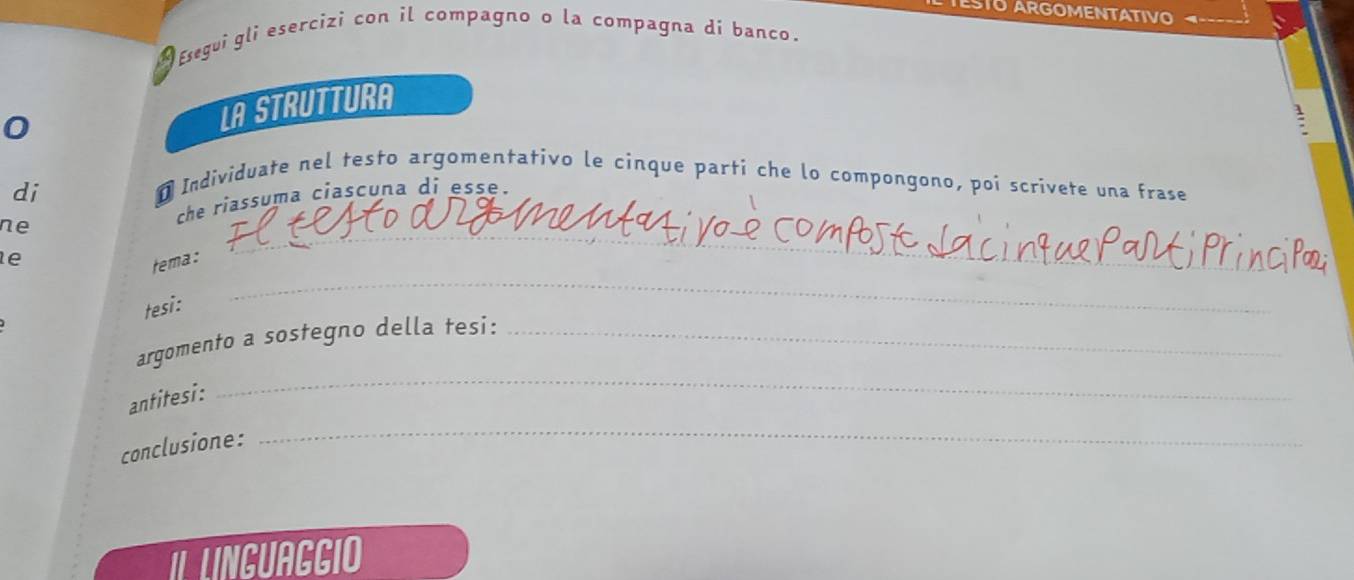 TESTO ARGOMENTATIVO
Esegui gli esercizi con il compagno o la compagna di banco.
LA STRUTTURA
O
di
ne
1 Individuate nel testo argomentativo le cinque parti che lo compongono, poi scrivete una frase
che riassuma ciascuna di esse.
tema: Il testo argomentativo è compost da cinque parti principali
tesi:
argomento a sostegno della tesi:
antitesi:
conclusione:
IL LINGUAGGIO